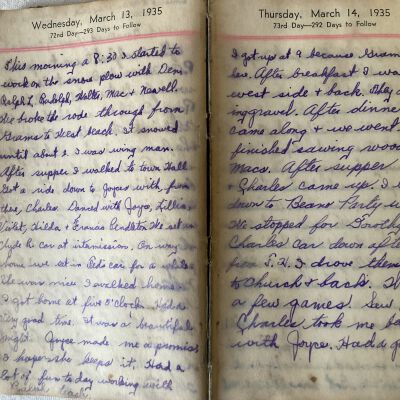 Wednesday, March 13, 1935
72nd Day—293 Days to Follow
This morning a 8:30 I started to
work on the snow plow with Den,
Ralph L, Rudolph, Walter, Mac & Newell.
We broke the rode through from
Grams to West beach. it snowed
until about 2. I was wing man.
After supper I walked to town Hall
Got a ride down to Joyces with, from
there, Charles. Danced with Joyce, Lillian
Violet, Hilda & Frances Pendleton. We set in
Clyde R. car at intermission. On way
home we set in Ted's car for a while
She was nice I walked home &
I got home at five O'clock. Had a
very good time. It was a beautiful
night. Joyce made me a promise
I hope she keeps it. Had a
lot of fun today working with
Thursday, March 14, 1935
73rd Day—292 Days to Follow
I got up at 9 because Gram
law. After breakfast I wa
west side & back. They a
ing gravel. After dinne
came along & we went
finished sawing wood
Macs. After supper
& Charles came up. I w
down to Beano Party w
We stopped for Doroth
Charles car down afte
from T. H. I drove them
to Church & back. W
a few games! Sew
Charles took me ba
with Joyce. Had a g